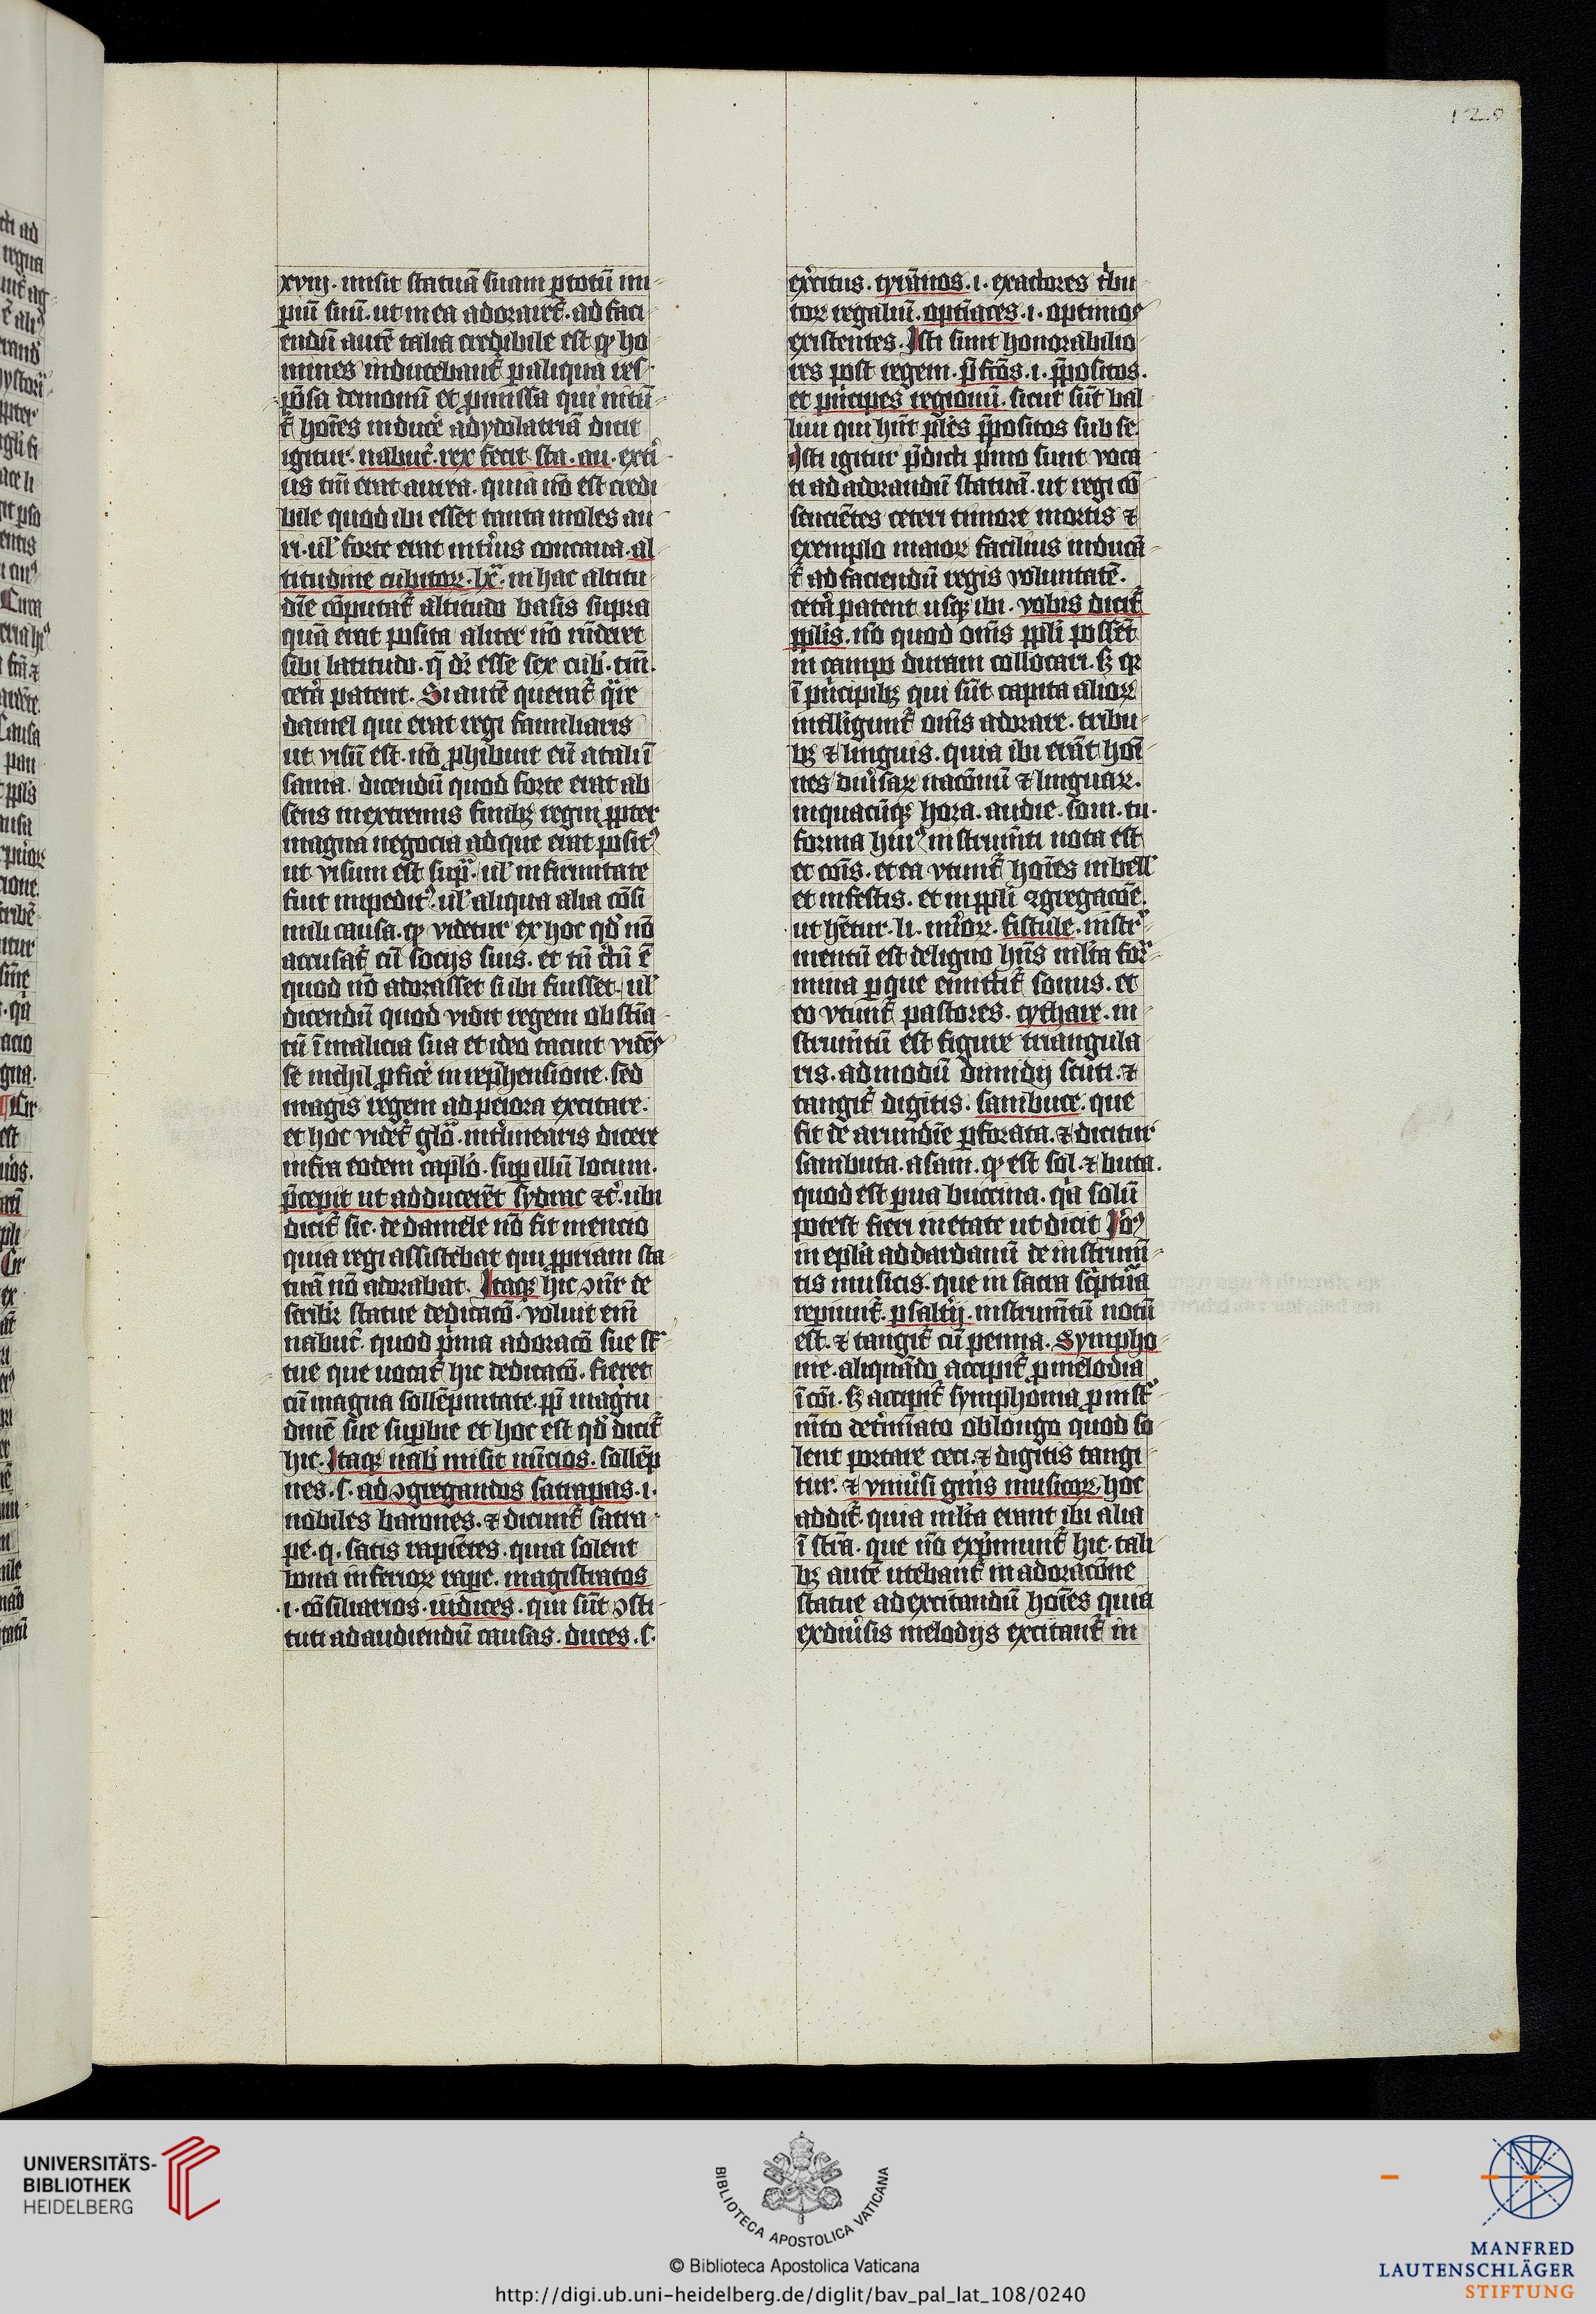 120
xviij. misit statuā suam ꝑ totū im
piū suū. ut in ea adoraret᷑. ad faci
endū autē talia credibile est ꝙ ho
mines inducebant᷑ ꝑ aliqua res
pōsa demonū et ꝓmissa qui nitū
t᷑ hoīes inducẽ ad ydolatriā dicit
igitur. nabuc̄. rex fecit sta. au. exti
us tm̄ erat aurea. quia nō est credi
bile quod ibi esset tanta moles au
ri. ul' forte erat int͛ius concaua. al
titudine cubitoꝝ. lxᵃ. in hac altitu
dīe cōputat᷑ altitudo basis supra
quā erat posita aliter nō rn̄deret
sibi latitudo. q̄ dr̄ esse sex cub'. tm̄.
cet͛a patent. Si autē querat᷑ q̄re
daniel qui erat regi familiaris
ut visū est. nō ꝓhibuit eū a tali ī
sania. dicendū quod forte erat ab
sens in extremis finibꝫ regni ꝓpter
magna negocia ad que erat positꝰ
ut visum est supᵃ. ul' infirmitate
fuit impeditꝰ. ul' aliqua alia cōsi
mili causa. ꝙ videtur ex hoc qd' nō
accusat᷑ cū socijs suis. et tn̄ c̄tū ē
quod nō adorasset si ibi fuisset. ul'
dicendū quod vidit regem obstīa
tū ī malicia sua et ideo tacuit vidēs
se nichil ꝓficẽ in rep̄hensione. sed
magis regem ad peiora excitare.
et hoc videt᷑ glō. int͛linearis dicere
infra eodem caplo. sup illū locum.
p̄cepit ut adducerēt sydrac ⁊c̄. ubi
dicit᷑ sic. de daniele nō fit mencio
quia regi assistebat qui ꝓpriam sta
tuā nō adorabat. Itaqꝫ hic ꝯn̄r de
scribit᷑ statue dedicacō. voluit em̄
nabuc̄. quod p͛ma adoracō sue st
tue que uocat᷑ hic dedicacō. fieret
cū magna sollēpnitate. ꝓp̄ magitu
dinē sue supbie et hoc est qd' dicit᷑
hic. Itaqꝫ nab' misit nūcios. sollēp
nes. s. ad ꝯgregandos satrapas. i.
nobiles barones. ⁊ dicunt᷑ satra
pe. q. satis rapiētes. quia solent
bona inferioꝝ rape. magistratos
.i. cōsiliarios. iudices. qui sūt ꝯsti
tuti ad audiendū causas. duces. s.
ex͛citus. tyrānos. i. exactores t͛bu
toꝝ regaliū. optīates. i. optimos
existentes. Isti sunt honorabilio
res post regem. p̄fctōs. i. p̄positos.
et p͛ncipes regionū. sicut sūt bal
liui qui hn̄t ples p̄positos sub se.
Isti igitur p̄dicti p͛mo sunt voca
ti ad adorandū statuā. ut regi cō
sencientes ceteri timore mortis ⁊
exemplo maioꝝ facilius inducā
t᷑ ad faciendū regis voluntatē.
cet͛a patent usqꝫ ibi. vobis dicit᷑
ppl̄is. nō quod om̄s ppl̄i possēt
in campo duram collocari. sꝫ qꝛ
ī p͛ncipibꝫ qui sūt capita alioꝝ
intelligunt᷑ om̄s adorare. tribu
bꝫ ⁊ linguis. quia ibi erāt hoī
nes diu͛saꝝ nacōnū ⁊ linguaꝝ.
in quacūqꝫ hora. audie. son. tu.
forma huiꝰ instrumēti nota est
et cōis. et ea vtunt᷑ hoīes in bell'
et in festis. et in ppl̄i ꝯgregacōe.
ut hētur. li. nūoꝝ. fistule. instr
mentū est de ligno hn̄s ml̄ta for
mina ꝑ que emittit᷑ sonus. et
eo vtunt᷑ pastores. cythare. in
strumētū est figure triangula
ris. ad modū dimidij scuti. ⁊
tangit᷑ digitis. sambuce. que
fit de arundīe ꝑforata. ⁊ dicitur
sambuca. a sam. ꝙ est sol. ⁊ buca.
quod est pua buccina. q͛a solū
potest fieri in etate ut dicit Jo
in epl̄a ad dardanū de instrum̄
tis musicis. que in sacra sc͛ptura
repiunt᷑. psalt͛ij. instrumētū notū
est. ⁊ tangit᷑ cū penna. Sympho
nie. aliquādo accipit᷑ ꝓ melodia
ī cōi. sꝫ accipit᷑ symphonia ꝓ inst
mēto det͛mīato oblongo quod so
lent portare ceci. ⁊ digitis tangi
tur. ⁊ vniu͛si gn̄is musicoꝝ. hoc
addit᷑. quia ml̄ta erant ibi alia
ī str̄a. que nō exp͛munt᷑ hic. tali
bꝫ autē utebant᷑ in adoracōne
statue ad excitandū hoīes quia
ex diu͛sis melodijs excitant᷑ in
UNIVERSITÄTS-
BIBLIOTHEK
HEIDELBERG
BIBLIOTECA APOSTOLICA VATICANA
© Biblioteca Apostolica Vaticana
http://digi.ub.uni-heidelberg.de/diglit/bav_pal_lat_108/0240
MANFRED
LAUTENSCHLÄGER
STIFTUNG